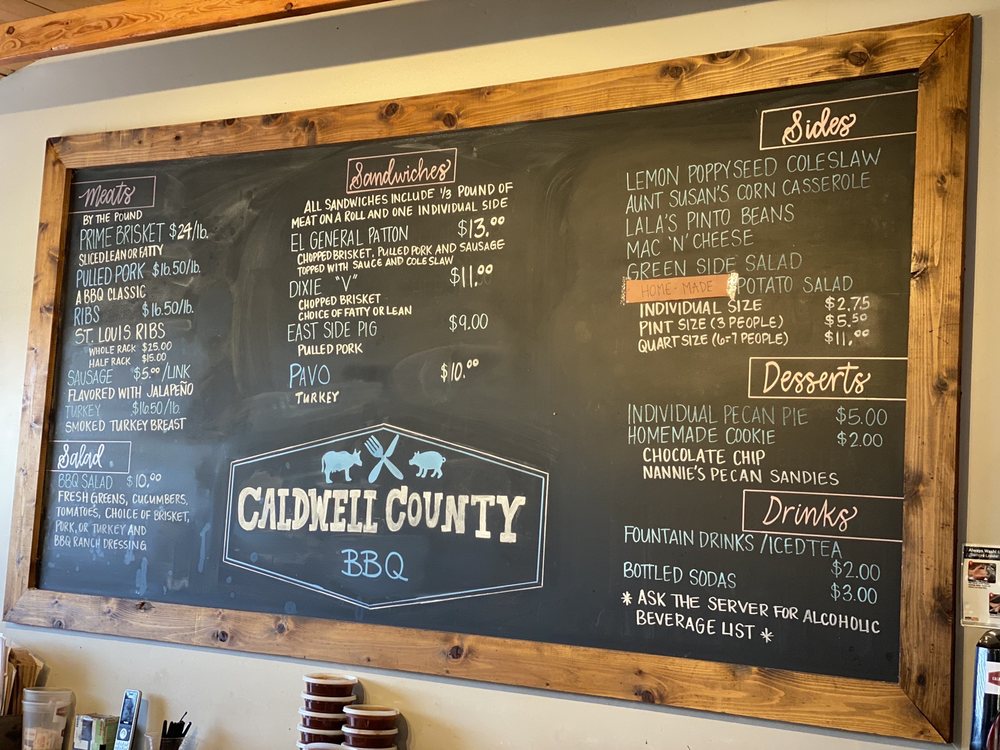 Meats
BY THE POUND
PRIME BRISKET $24/lb.
SLICED LEAN OR FATTY
PULLED PORK $16.50/lb.
A BBQ CLASSIC
RIBS $16.50/lb.
ST. LOUIS RIBS
WHOLE RACK $25.00
HALF RACK $15.00
SAUSAGE $5.00/LINK
FLAVORED WITH JALAPEÑO
TURKEY $16.50/lb.
SMOKED TURKEY BREAST
Salad
BBQ SALAD $10.00
FRESH GREENS, CUCUMBERS,
TOMATOES, CHOICE OF BRISKET,
PORK, OR TURKEY AND
BBQ RANCH DRESSING
Sandwiches
ALL SANDWICHES INCLUDE 1/3 POUND OF
MEAT ON A ROLL AND ONE INDIVIDUAL SIDE
EL GENERAL PATTON $13.00
CHOPPED BRISKET, PULLED PORK AND SAUSAGE
TOPPED WITH SAUCE AND COLESLAW
DIXIE "V" $11.00
CHOPPED BRISKET
CHOICE OF FATTY OR LEAN
EAST SIDE PIG $9.00
PULLED PORK
PAVO $10.00
TURKEY
CALDWELL COUNTY
BBQ
Sides
LEMON POPPYSEED COLESLAW
AUNT SUSAN'S CORN CASSEROLE
LALA'S PINTO BEANS
MAC 'N' CHEESE
GREEN SIDE SALAD
HOME-MADE POTATO SALAD
INDIVIDUAL SIZE $2.75
PINT SIZE (3 PEOPLE) $5.50
QUART SIZE (6-7 PEOPLE) $11.00
Desserts
INDIVIDUAL PECAN PIE $5.00
HOMEMADE COOKIE $2.00
CHOCOLATE CHIP
NANNIE'S PECAN SANDIES
Drinks
FOUNTAIN DRINKS /ICED TEA
$2.00
BOTTLED SODAS $3.00
* ASK THE SERVER FOR ALCOHOLIC
BEVERAGE LIST *